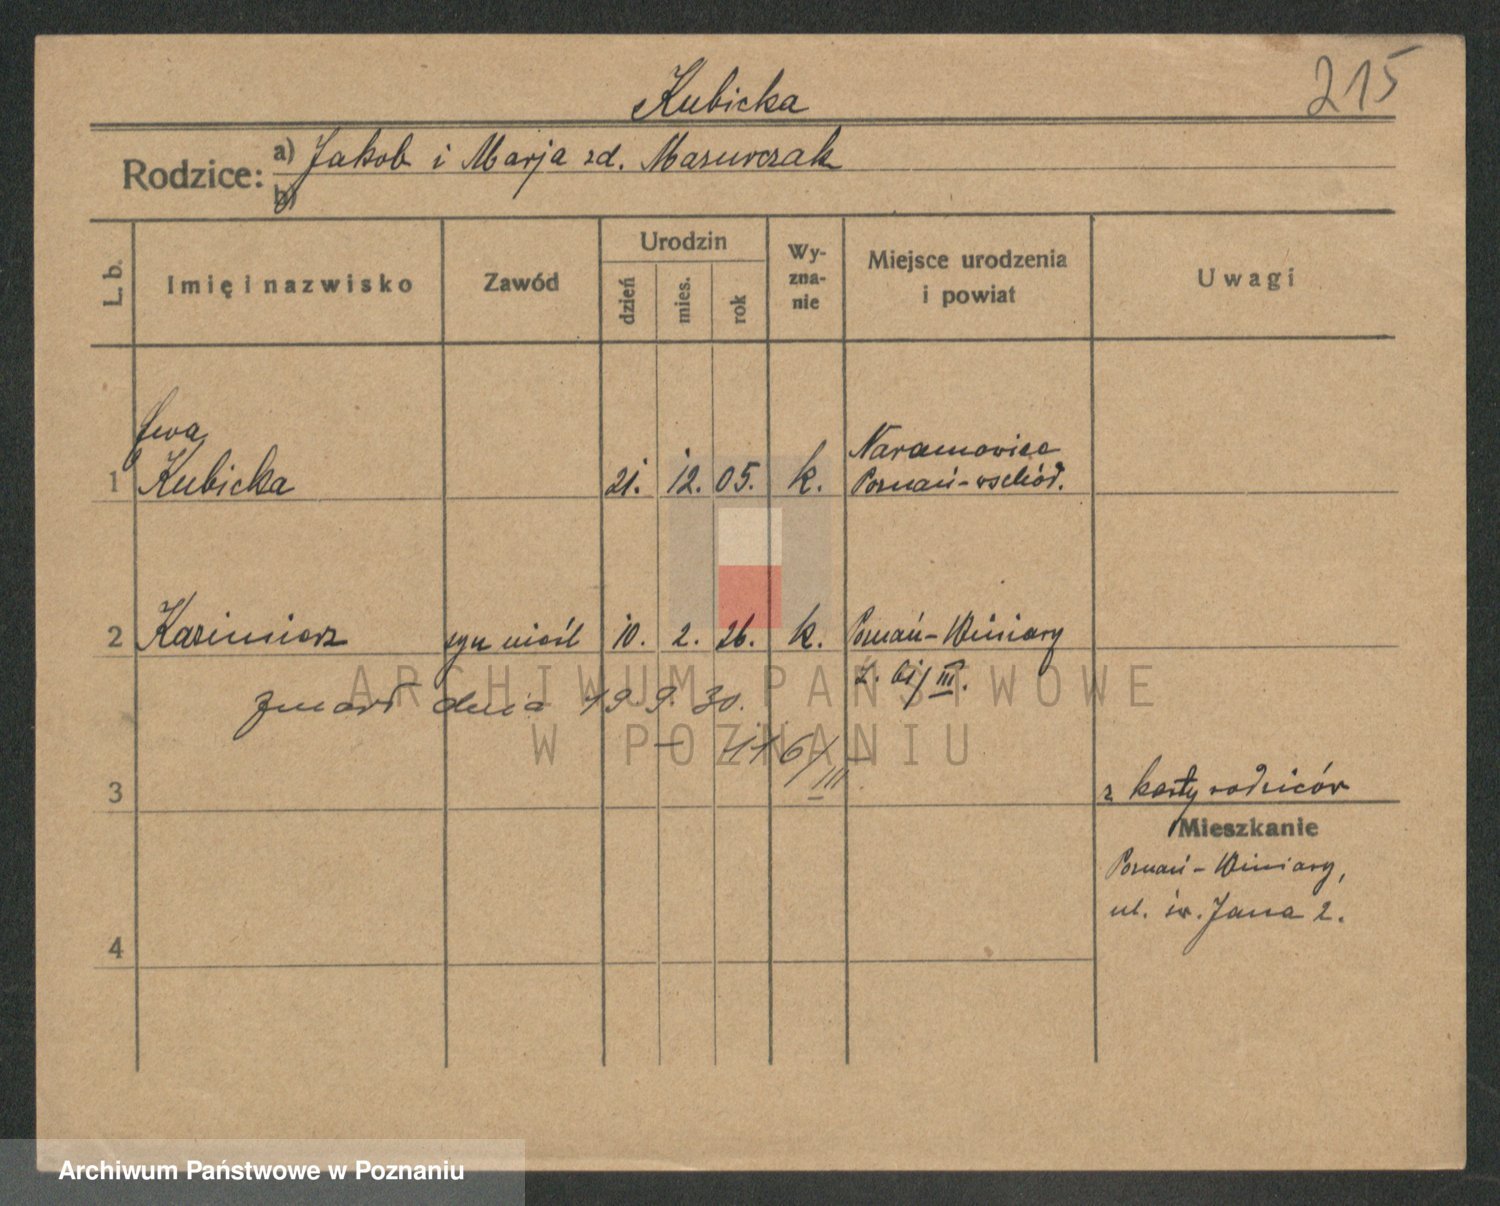 215
Kubicka
Rodzice: a) Jakob i Marja zd. Mazurczak
b)
L. b.
Imię i nazwisko
Zawód
Urodzin
dzień
mies.
rok
Wy-
zna-
nie
Miejsce urodzenia
i powiat
Uwagi
Ewa
1 Kubicka 21. 12. 05. k. Naramowice
Poznań-wschód.
2 Kazimierz syn nieśl 10. 2. 26. k. Poznań-Winiary
zmarł dnia 19 9. 30. L. 61/III.
416/III
3
z karty rodziców
Mieszkanie
Poznań-Winiary,
ul. św. Jana 2.
4
ARCHIWUM PAŃSTWOWE
W POZNANIU
Archiwum Państwowe w Poznaniu